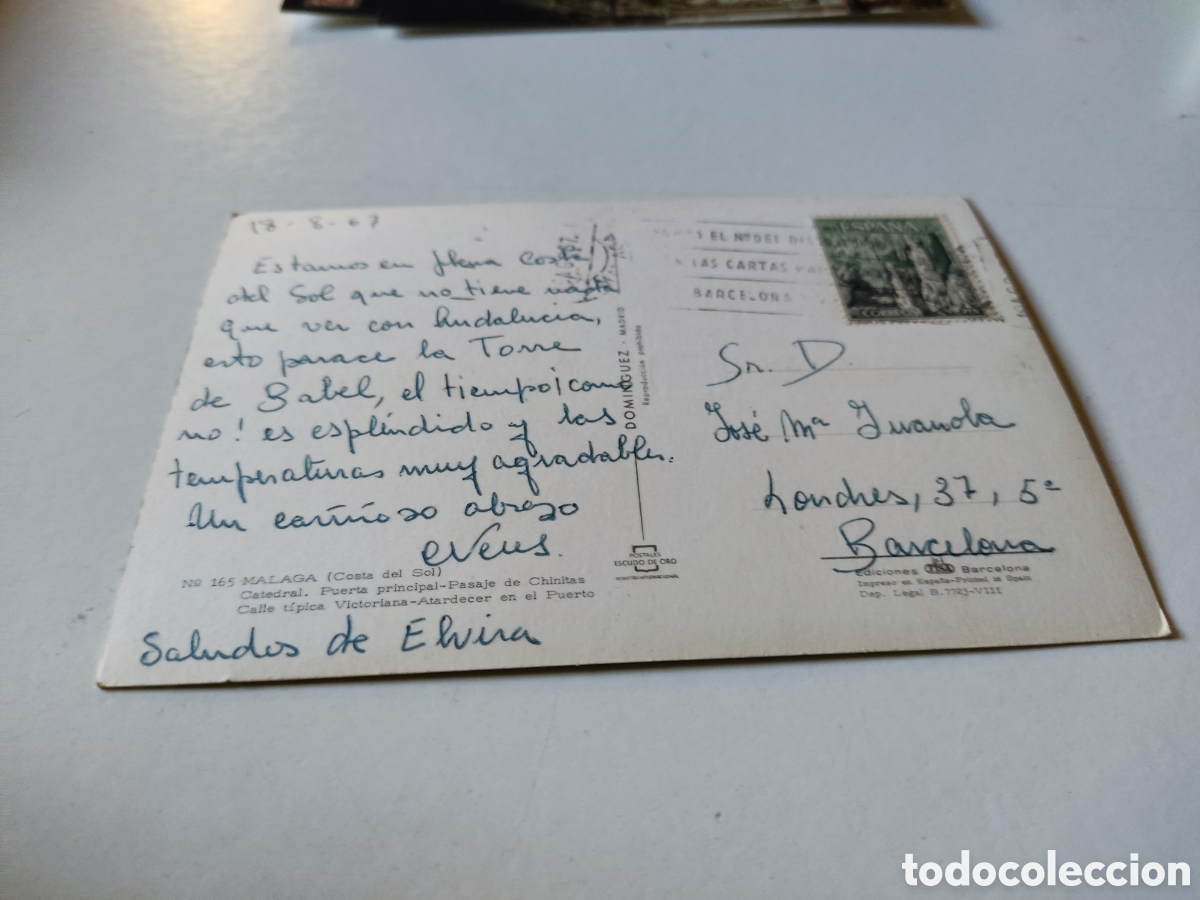 18-8-67
Estamos en plena Costa
del Sol que no tiene nada
que ver con Andalucia,
esto parace la Torre
de Babel, el tiempo ¡como
no! es espléndido y las
temperaturas muy agradables.
Un cariñoso abrazo
Neus.
Nº 165 MALAGA (Costa del Sol)
Catedral. Puerta principal-Pasaje de Chinitas
Calle típica Victoriana-Atardecer en el Puerto
Saludos de Elvira
DOMINGUEZ - MADRID
Reproducción prohibida
POSTALES
ESCUDO DE ORO
EL Nº DEL DIS
LAS CARTAS
BARCELONA
ESPAÑA
CORREOS
Sr. D.
José Mª Juanola
Londres, 37, 5º
Barcelona
Ediciones Barcelona
Impreso en España-Printed in Spain
Dep. Legal B. 7723-VIII
todocoleccion